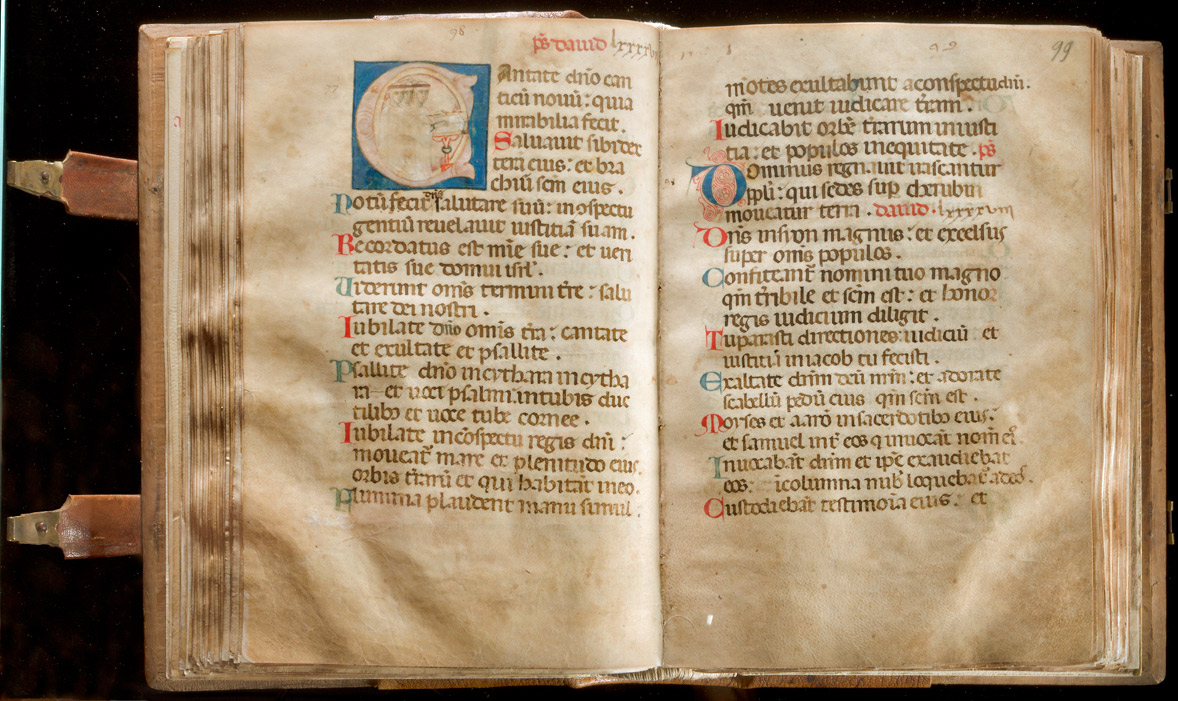 98
ps dauid lxxxxvii
Cantate dño can
ticū nouū : quia
mirabilia fecit .
Saluauit sibi dex
tera eius : et bra
chiū scm eius .
Notū fecit dñs salutare suū : in cōspectu
gentiū reuelauit iustitiā suam .
Recordatus est mīe sue : et ueri
tatis sue domui isrl' .
Uiderunt omīs termini tr̄e : salu
tare dei nostri .
Iubilate dño omīs tr̄a : cantate
et exultate et psallite .
Psallite dño in cythara in cytha
ra et uoci psalmi in tubis duc
tilibȝ et uoce tube cornee .
Iubilate in cōspectu regis dñi :
moueat̄ mare et plenitudo eius
orbis tr̄arū et qui habitāt in eo .
Flumina plaudent manu simul .
99
mōtes exultabunt a conspectu dñi .
qm̄ uenit iudicare tr̄am .
Iudicabit orbē tr̄arum in iusti
tia : et populos in equitate . ps
Dominus regn. uit irascantur
ppl̄i : qui sedes suꝑ cherubin
moueatur terra . dauid . lxxxxviii
Dñs in syon magnus : et excelsus
super om̄s populos .
Confiteant̄ nomini tuo magno
qm̄ tr̄ibile et scm̄ est : et honor
regis iudicium diligit .
Tu parasti directiones : iudiciū et
iustitiā in iacob tu fecisti .
Exaltate dn̄m deū nr̄m : et adorate
scabellū pedū eius qm̄ scm̄ est .
Moyses et aarō in sacerdotibȝ eius :
et samuel int̄ eos q̄ inuocāt nom̄ eī .
Inuocabāt dn̄m et ip̄e exaudiebat
eos . ī columna nub̄ loquebat̄ ad eos .
Custodiebāt testimoīa eius . et